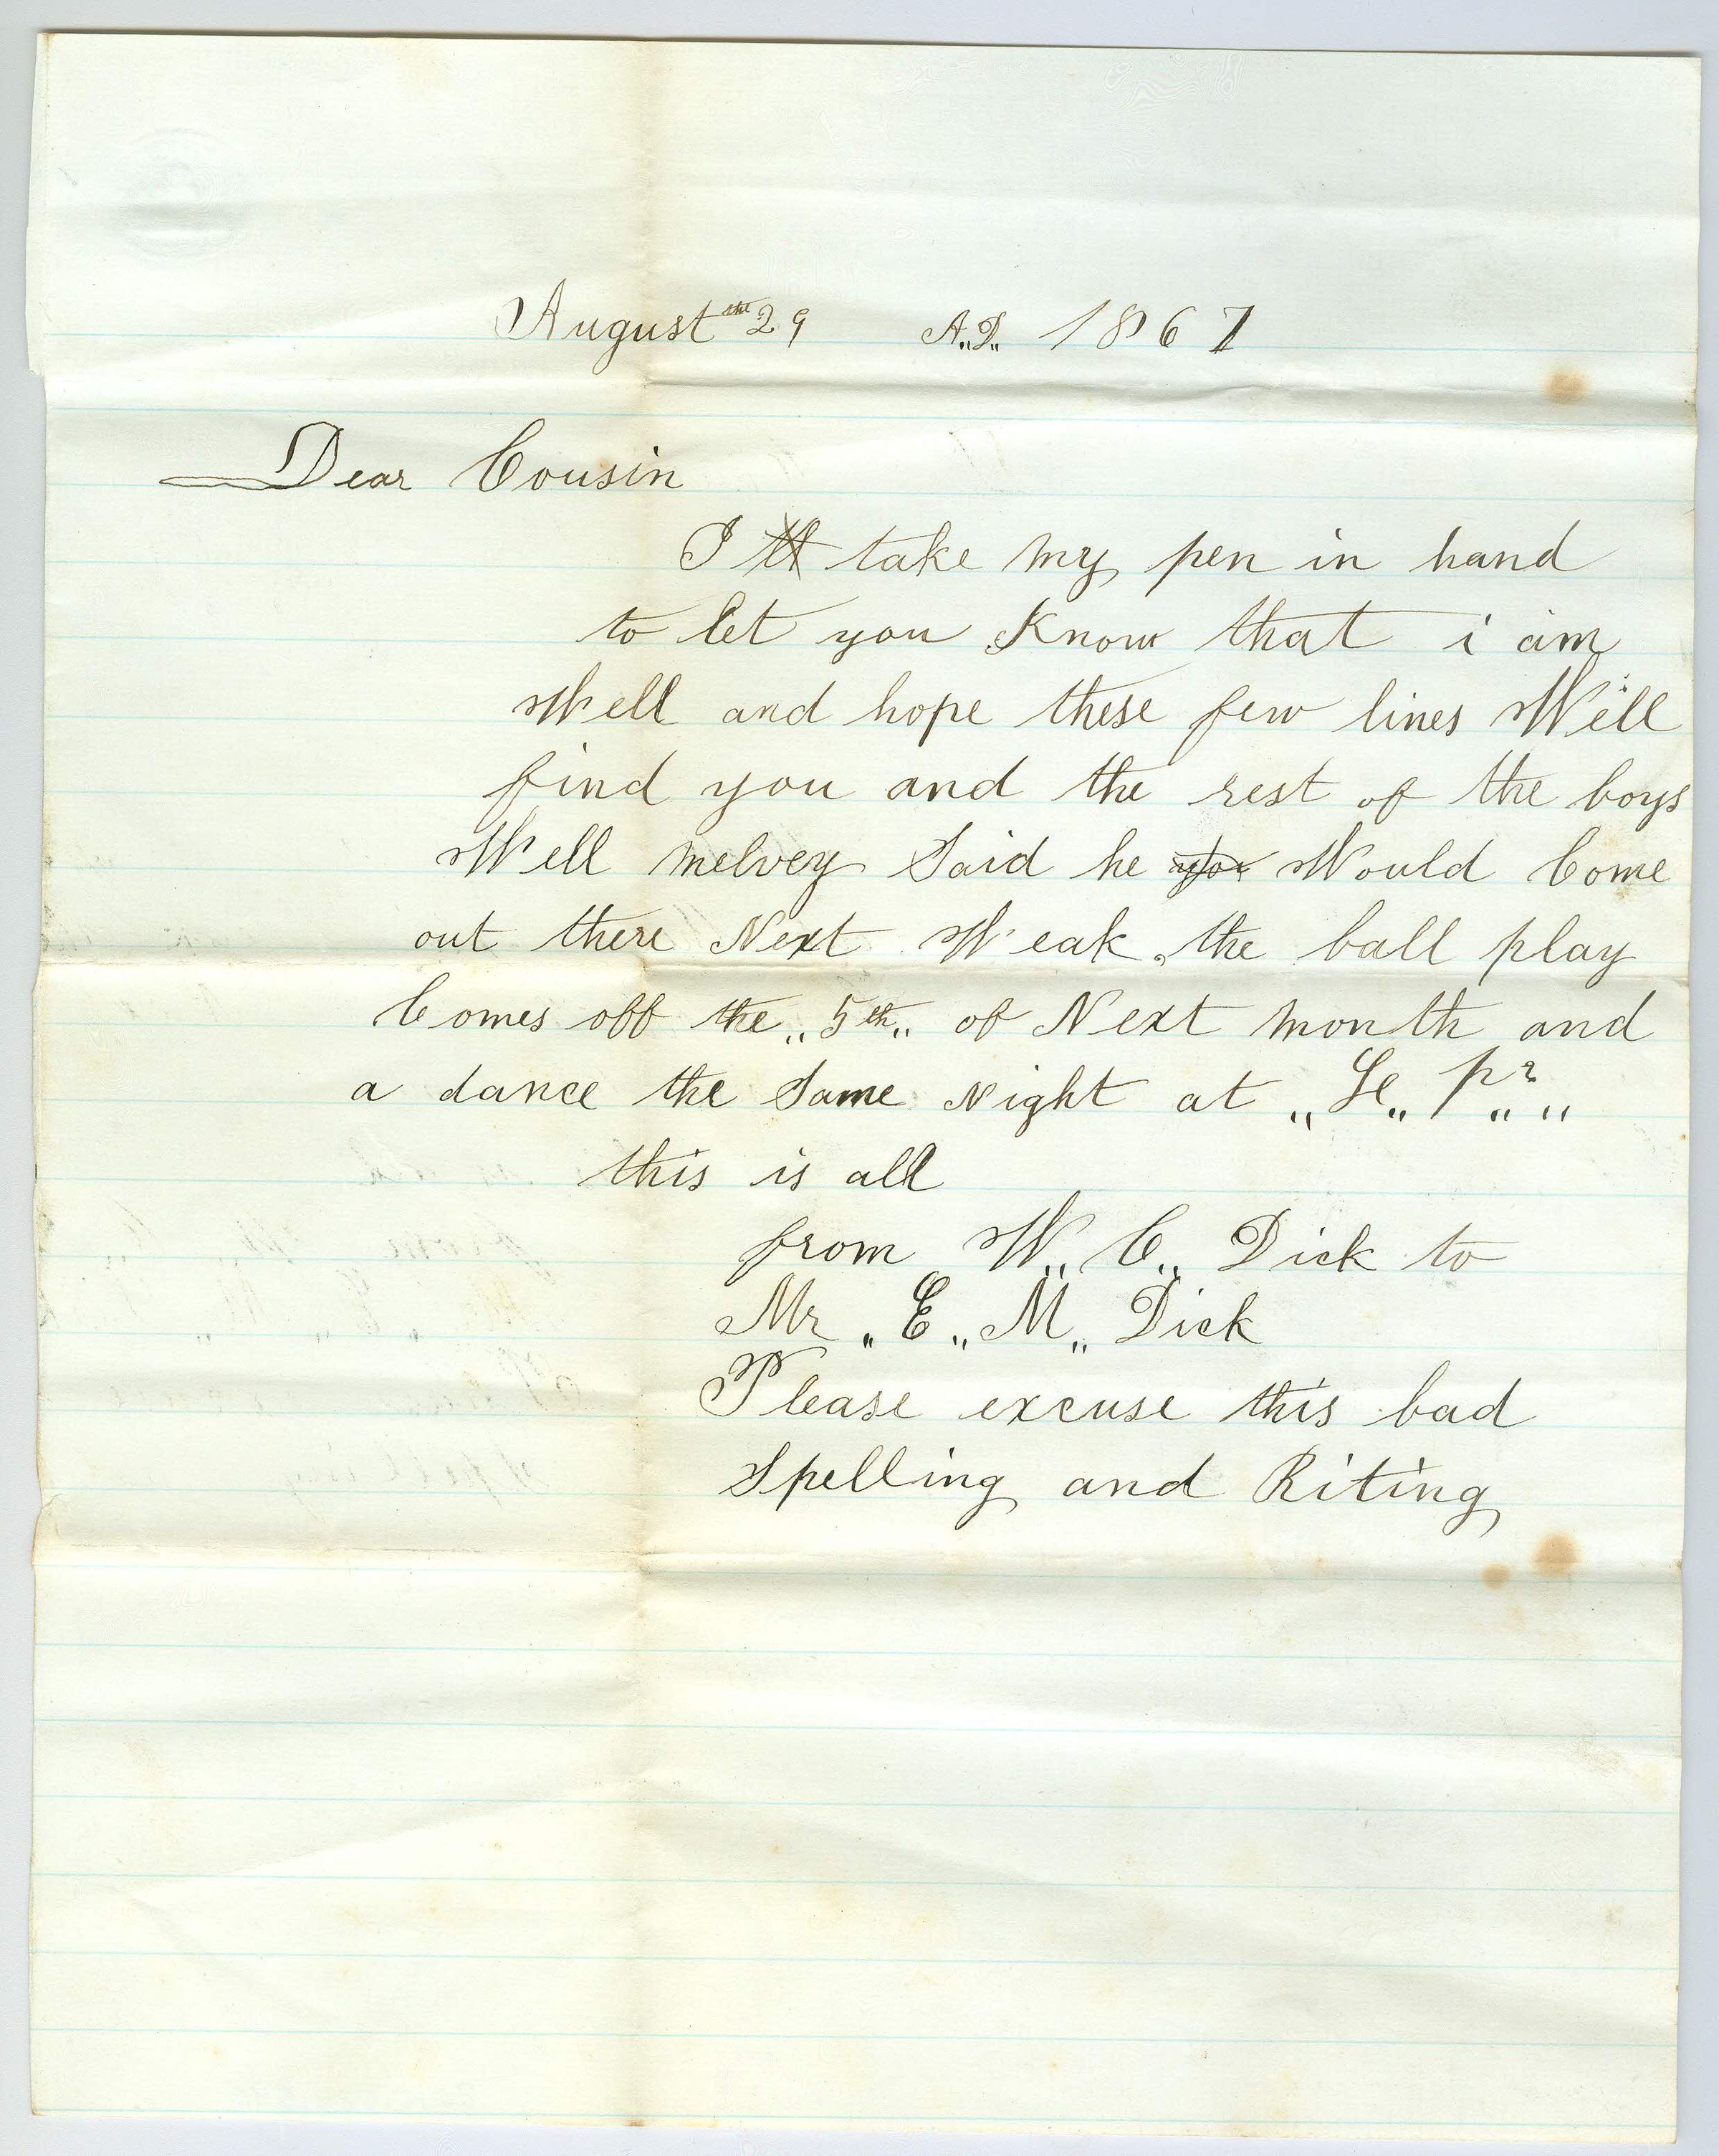 August the 29 A.D. 1867
Dear Cousin
I take my pen in hand
to let you Know that i am
Well and hope these few lines Will
find you and the rest of the boys
Well melvey Said he Would Come
out there Next Weak. the ball play
Comes off the „5th„ of Next month and
a dance the Same Night at
this is all
from W„ C„ Dick to
Mr „E„ M„ Dick
Please excuse this bad
Spelling and Riting